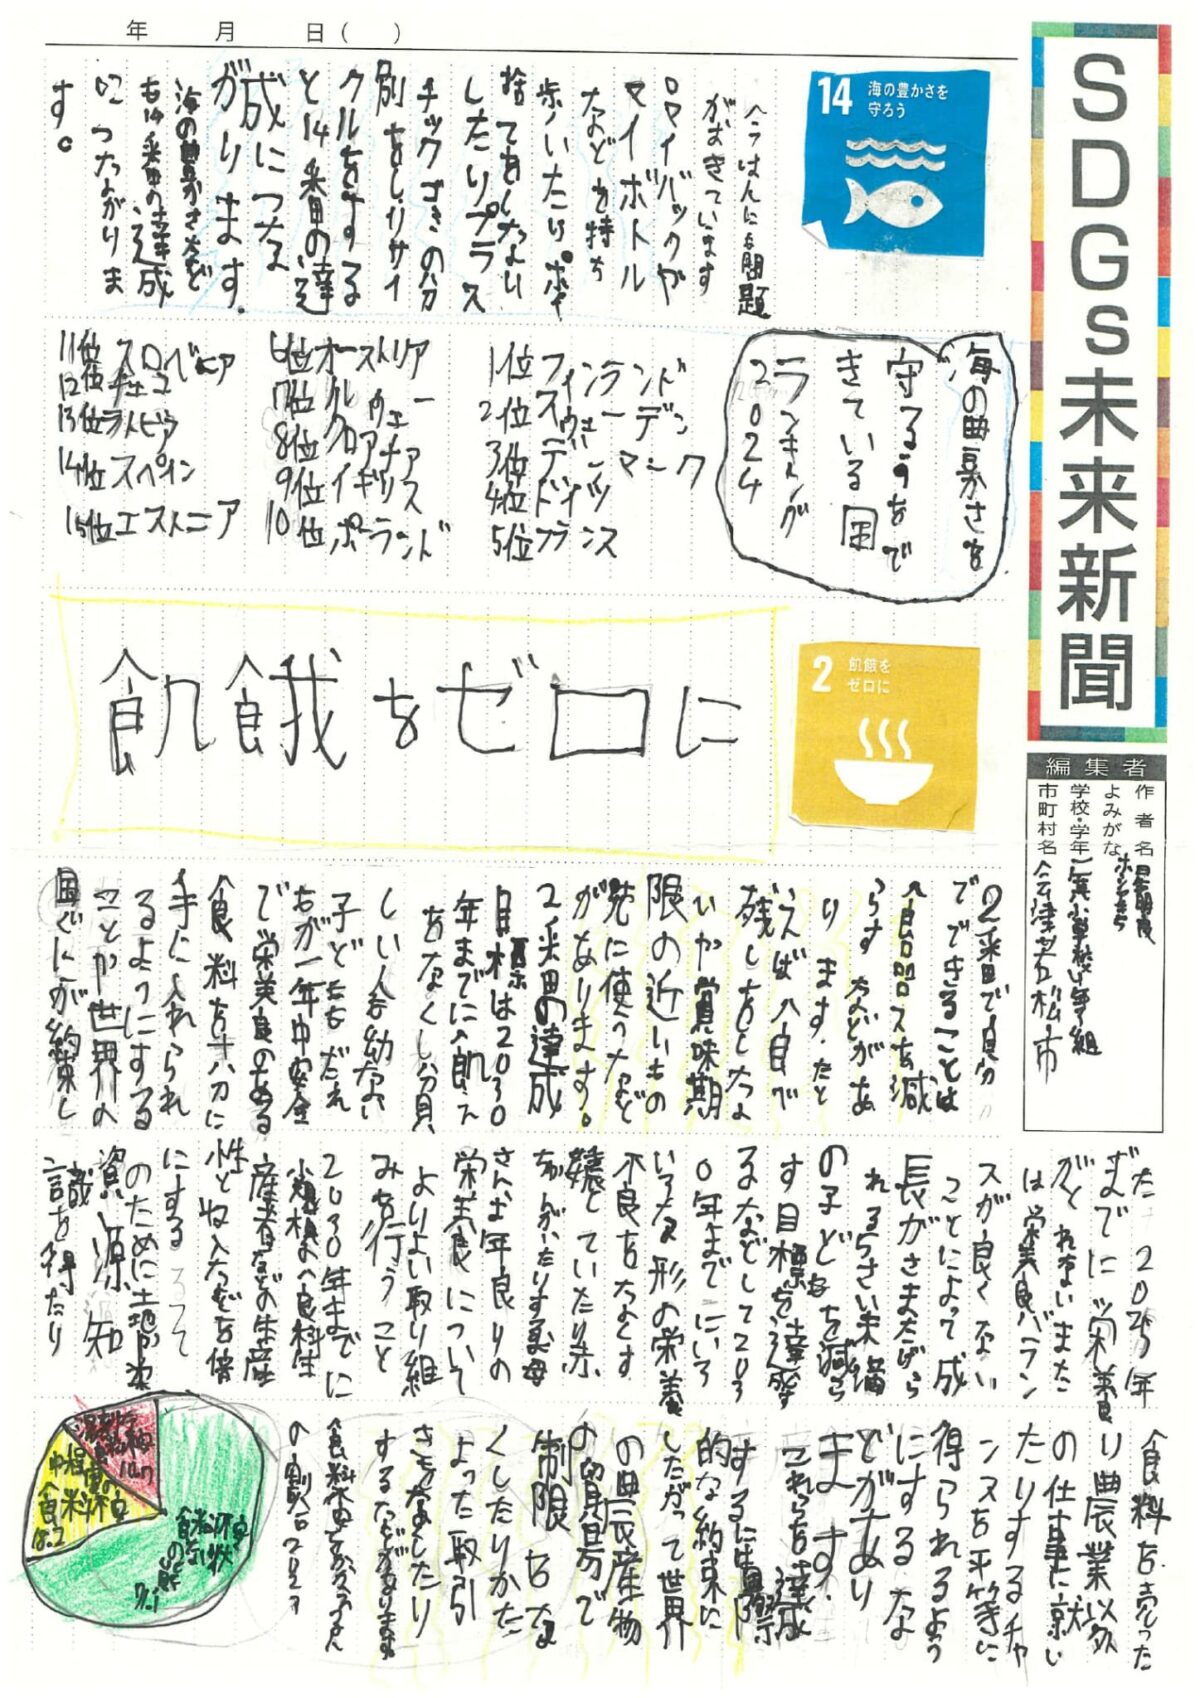 SDGs未来新聞
年 月 日( )
編集者
作者名
よみがな
学校・学年
市町村名 会津若松市
14 海の豊かさを
守ろう
がおきています
ロマイバックや
マイボトル
などを持ち
歩いたり。水
捨てをしない
したりプラス
チックゴミの分
別をしリサイ
クルをする
と14番目の達
成につな
がります。
海の豊かさなど
も14番目の達成
につながりま
す。
海の豊かさを
守るのをで
きている国
ランキング
2024
1位フィンランド
2位スウェーデン
3位デンマーク
4位ドイツ
5位フランス
6位オーストリア
7位ノルウェー
8位クロアチア
9位イギリス
10位ポーランド
11位スロベニア
12位チェコ
13位ラトビア
14位スペイン
15位エストニア
2 飢餓を
ゼロに
飢餓をゼロに
2番目で自分
でできることは
食品ロスを減
らすなどがあ
ります。たと
えば八自で
残しをしな
いか賞味期
限の近いもの
先に使うなど
があります。
2番目の達成
目標は2030
年までに入飢え
をなくし分貧
しい人も幼ない
子どももだれ
もが一年中安全
で栄養のある
食料を十分に
手に入れられ
るようにする
ことが世界の
国ぐにが約束し
た 2025年
までに栄養
がとれないまた
は栄養バラン
スが良くない
ことによって成
長がさまたげら
れる5さい未満
の子どもを減ら
す目標を達成
るなどして203
0年までにいろ
いろな形の栄養
不良をなくす
嬢とていたり赤
ちゃんがいたりする母
さんお年良りの
栄養について
よりよい取り組
みを行うこと
2030年までに
小規模の食料生
産者などの生産
性と収入などを倍
にする
のために土地や
資源 知
識を得たり
食料を売った
り農業以外
の仕事に就い
たりするチャ
ンスを平等に
得られるよう
にするな
どがあり
ます。
これらを達成
するに国際
的な約束に
したがって世界
の農産物
の貿易で
制限をな
くしたりかた
よった取引
さをなくしたり
するなどがあります。